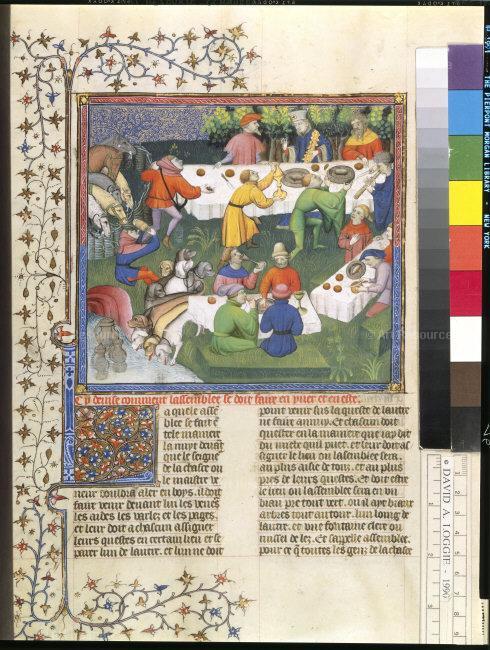 Cy devise comment lassemblee se doit faire en yver et en este.
a quele asse
blee se fait e
tele maniere
la nuyt devat
que le seigne
de la chasse ou
le maistre v
neur vouldra aler en boys. il doit
faire venir devant lui les venes
les aides les varlez et les pages
et leur doit a chascun assigner
leurs questes en certain lieu et se
parer lun de lautre. et lun ne doit
point venir sus la queste de lautre
ne faire annuy. Et chascun doit
quester en la maniere que iay dit
du mielz quil puet. et leur doit as
signer le lieu ou lassemblee sera.
au plus aise de touz. et au plus
pres de leurs questes. Et doit estre
le lieu ou lassemblee sera en un
biau pre tout vert. ou il ayt biaux
arbres tout au tour. lun loing de
lautre. et une fontaine clere ou
russel de lez. Et sapelle assemblee.
pour ce q toutes les genz de la chasse
THE PIERPONT MORGAN LIBRARY - NEW YORK
© DAVID A. LOGGIE - 1990
Art Resource